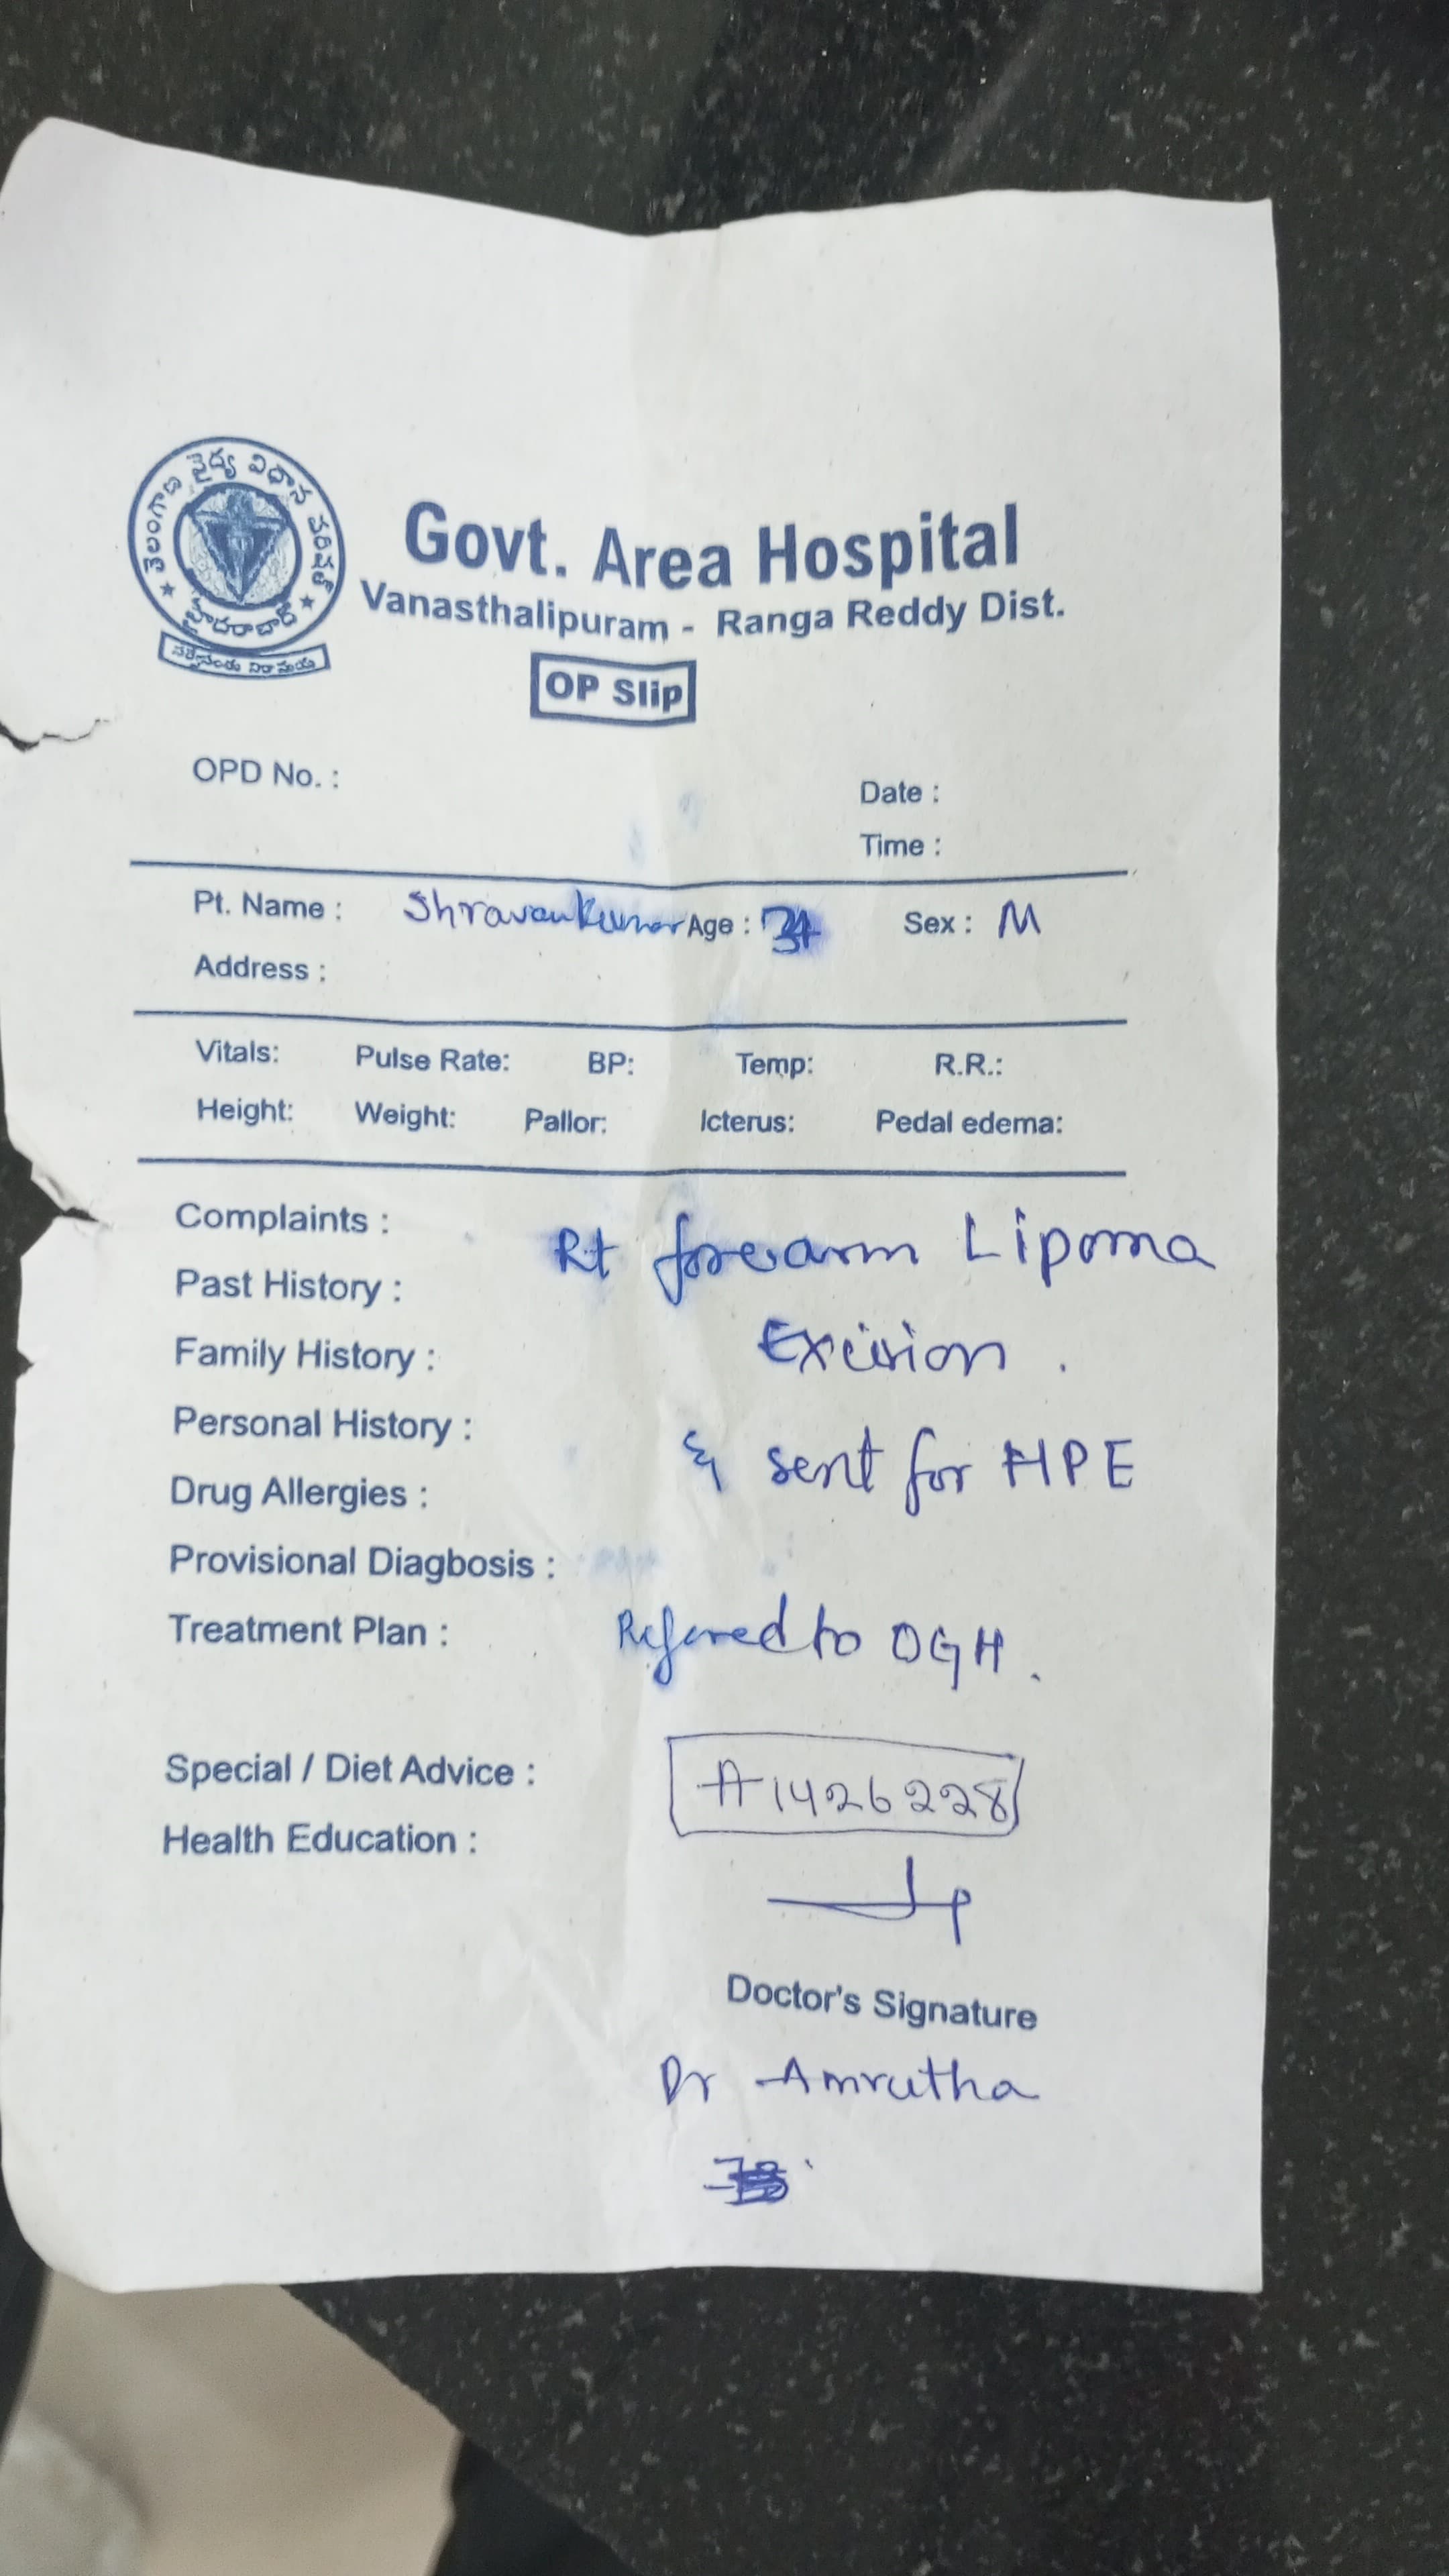 తెలంగాణ వైద్య విధాన పరిషత్
హైదరాబాద్
సర్వేసంతు నిరామయ
Govt. Area Hospital
Vanasthalipuram - Ranga Reddy Dist.
OP Slip
OPD No. :
Date :
Time :
Pt. Name : Shravan Kumar Age : Sex : M
Address :
Vitals: Pulse Rate: BP: Temp: R.R.:
Height: Weight: Pallor: Icterus: Pedal edema:
Complaints : Rt forearm Lipoma
Past History :
Family History : Excision .
Personal History : & sent for HPE
Drug Allergies :
Provisional Diagbosis :
Treatment Plan : Refered to OGH .
Special / Diet Advice : A1426228
Health Education :
Doctor's Signature
Dr Amrutha